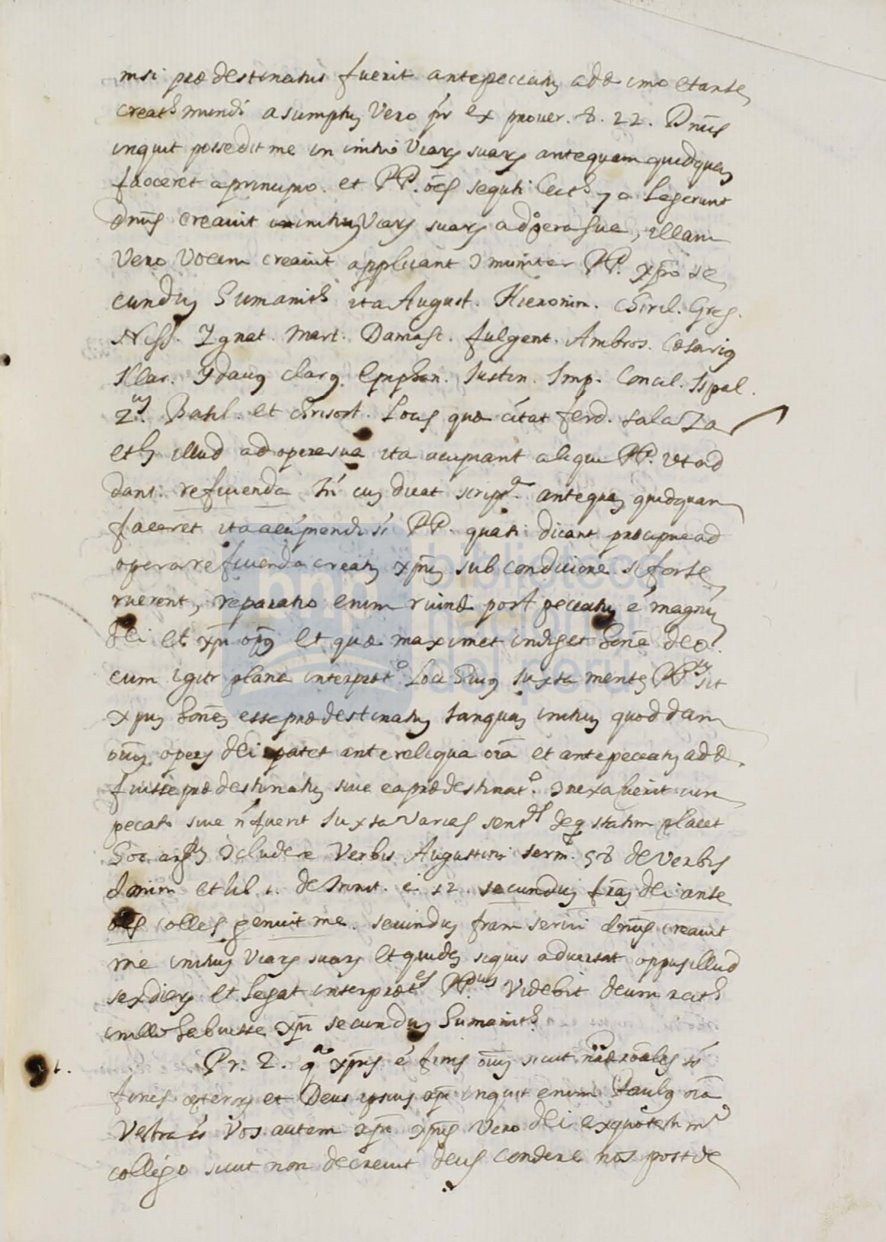 nisi prædestinatus fuerit ante peccatū adæ imo et ante
creatō mundi asumptū vero pr̄ ex prover. 8. 22. Dnūs
inquit possedit me in initio viarū suarū antequam quidquā
faceret a principio. et PP. oēs sequti legerunt
dnūs creavit initiū viarū suarū ad opera sua, illam
vero vocem creavit applicant PP. xp̄o se
cundū humanitē ita August. Hieronim. Chiril. Greg.
Niss. Ignat. Mart. Damasc. fulgent. Ambros.
Ilar. clarq. Epiphan. Justin. Imp. Concil. Hispal.
2. Basil. et Chrisost. Locis quæ citat ferd. salaza
illud ad opera sua ita acipiant aliqui PP. ut ad
dant: reficienda cū dicat script. antequā quidquam
faceret ita acipiendi st PP. quasi dicant præcipue ad
opera reficienda creatū xp̄m sub condicione si forte
ruerent, reparatio enim ruinæ post peccatū ē magnū
dei et xp̄i opq et quæ maximet indiget hōīe deo.
cum igitr plana interprēt. loci huiq juxta mentē PP. sit
xpm hoīēs esse prædestinatū tanquā initiū quoddam
oīū operū dei patet ante reliqua oīā et ante peccatū adæ
fuisse prædestinatū sive ea prædestinat. conexa fuerit cum
peccato sive n̄ fuerit juxta varias sent. de q statim placet
hoc cludere verbis Augustini serm. 58 de verbis
domini et lib 1. de trinit. c 12. secundū frā̄ dei ante
oēs colles genuit me. secundū fram servi dnūs creavit
me initiū viarū suarū et quidē siquis advertat oppus illud
sex dierū et legat interprætes PP. videbit deum
in illo habuisse xp̄m secundū humanitē
1. Pr. 2. qa xp̄us ē finis oīū sicut st
fines et Deus ipsius xp̄i inquit enim Paulq oīā
vestra st vos autem xp̄i xp̄us vero dei ex quo
colligo sicut non decrevit deus condere nos post de